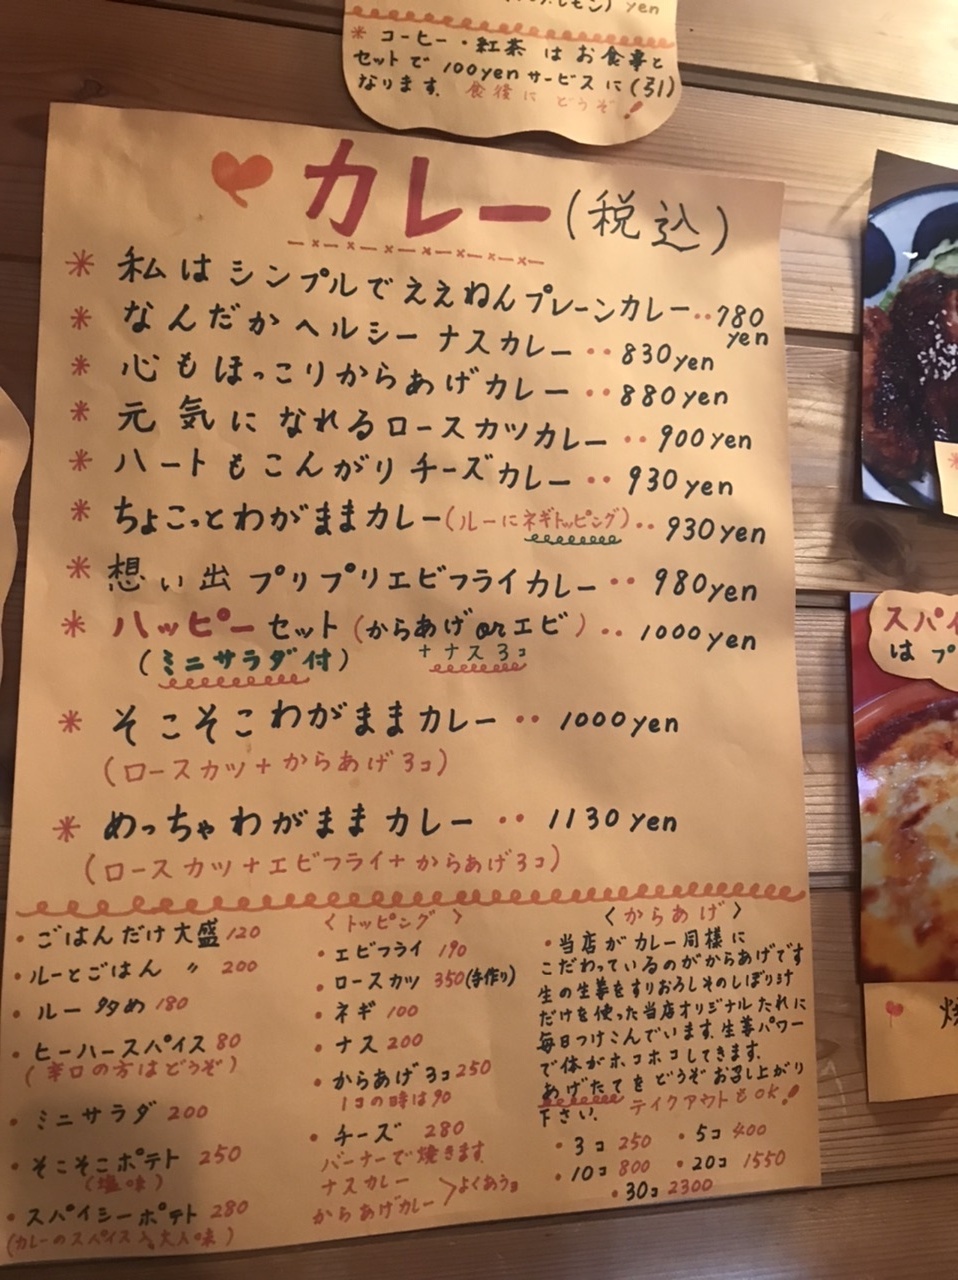 yen
* コーヒー・紅茶 はお食事と
セットで 100yen サービスに(引)
なります。 食後に どうぞ!
カレー (税込)
* 私はシンプルでええねんプレーンカレー‥780
yen
* なんだかヘルシー ナスカレー‥830yen
* 心もほっこりからあげカレー‥880yen
* 元気になれるロースカツカレー‥900yen
* ハートもこんがりチーズカレー‥930yen
* ちょこっとわがままカレー(ルーにネギトッピング)‥930yen
* 想い出プリプリエビフライカレー‥980yen
* ハッピーセット(からあげorエビ)‥1000yen
(ミニサラダ付) +ナス3コ
* そこそこわがままカレー‥1000yen
(ロースカツ+からあげ3コ)
* めっちゃわがままカレー‥1130yen
(ロースカツ+エビフライ+からあげ3コ)
・ごはんだけ大盛120
・ルーとごはん 〃 200
・ルー多め180
・ヒーハースパイス80
(辛口の方はどうぞ)
・ミニサラダ200
・そこそこポテト250
(塩味)
・スパイシーポテト280
(カレーのスパイス入大人味)
〈トッピング〉
・エビフライ190
・ロースカツ350(手作り)
・ネギ100
・ナス200
・からあげ3コ250
1コの時は90
・チーズ280
バーナーで焼きます
ナスカレー
からあげカレー >よくあうヨ
〈からあげ〉
・当店がカレー同様に
こだわっているのがからあげです
生の生姜をすりおろしそのしぼり汁
だけを使った当店オリジナルたれに
毎日つけこんでいます。生姜パワー
で体がホコホコしてきます。
あげたてをどうぞお召し上がり
下さい。 テイクアウトもOK!
・3コ250 ・5コ400
・10コ800 ・20コ1550
・30コ2300
スパイ
は プ
焼